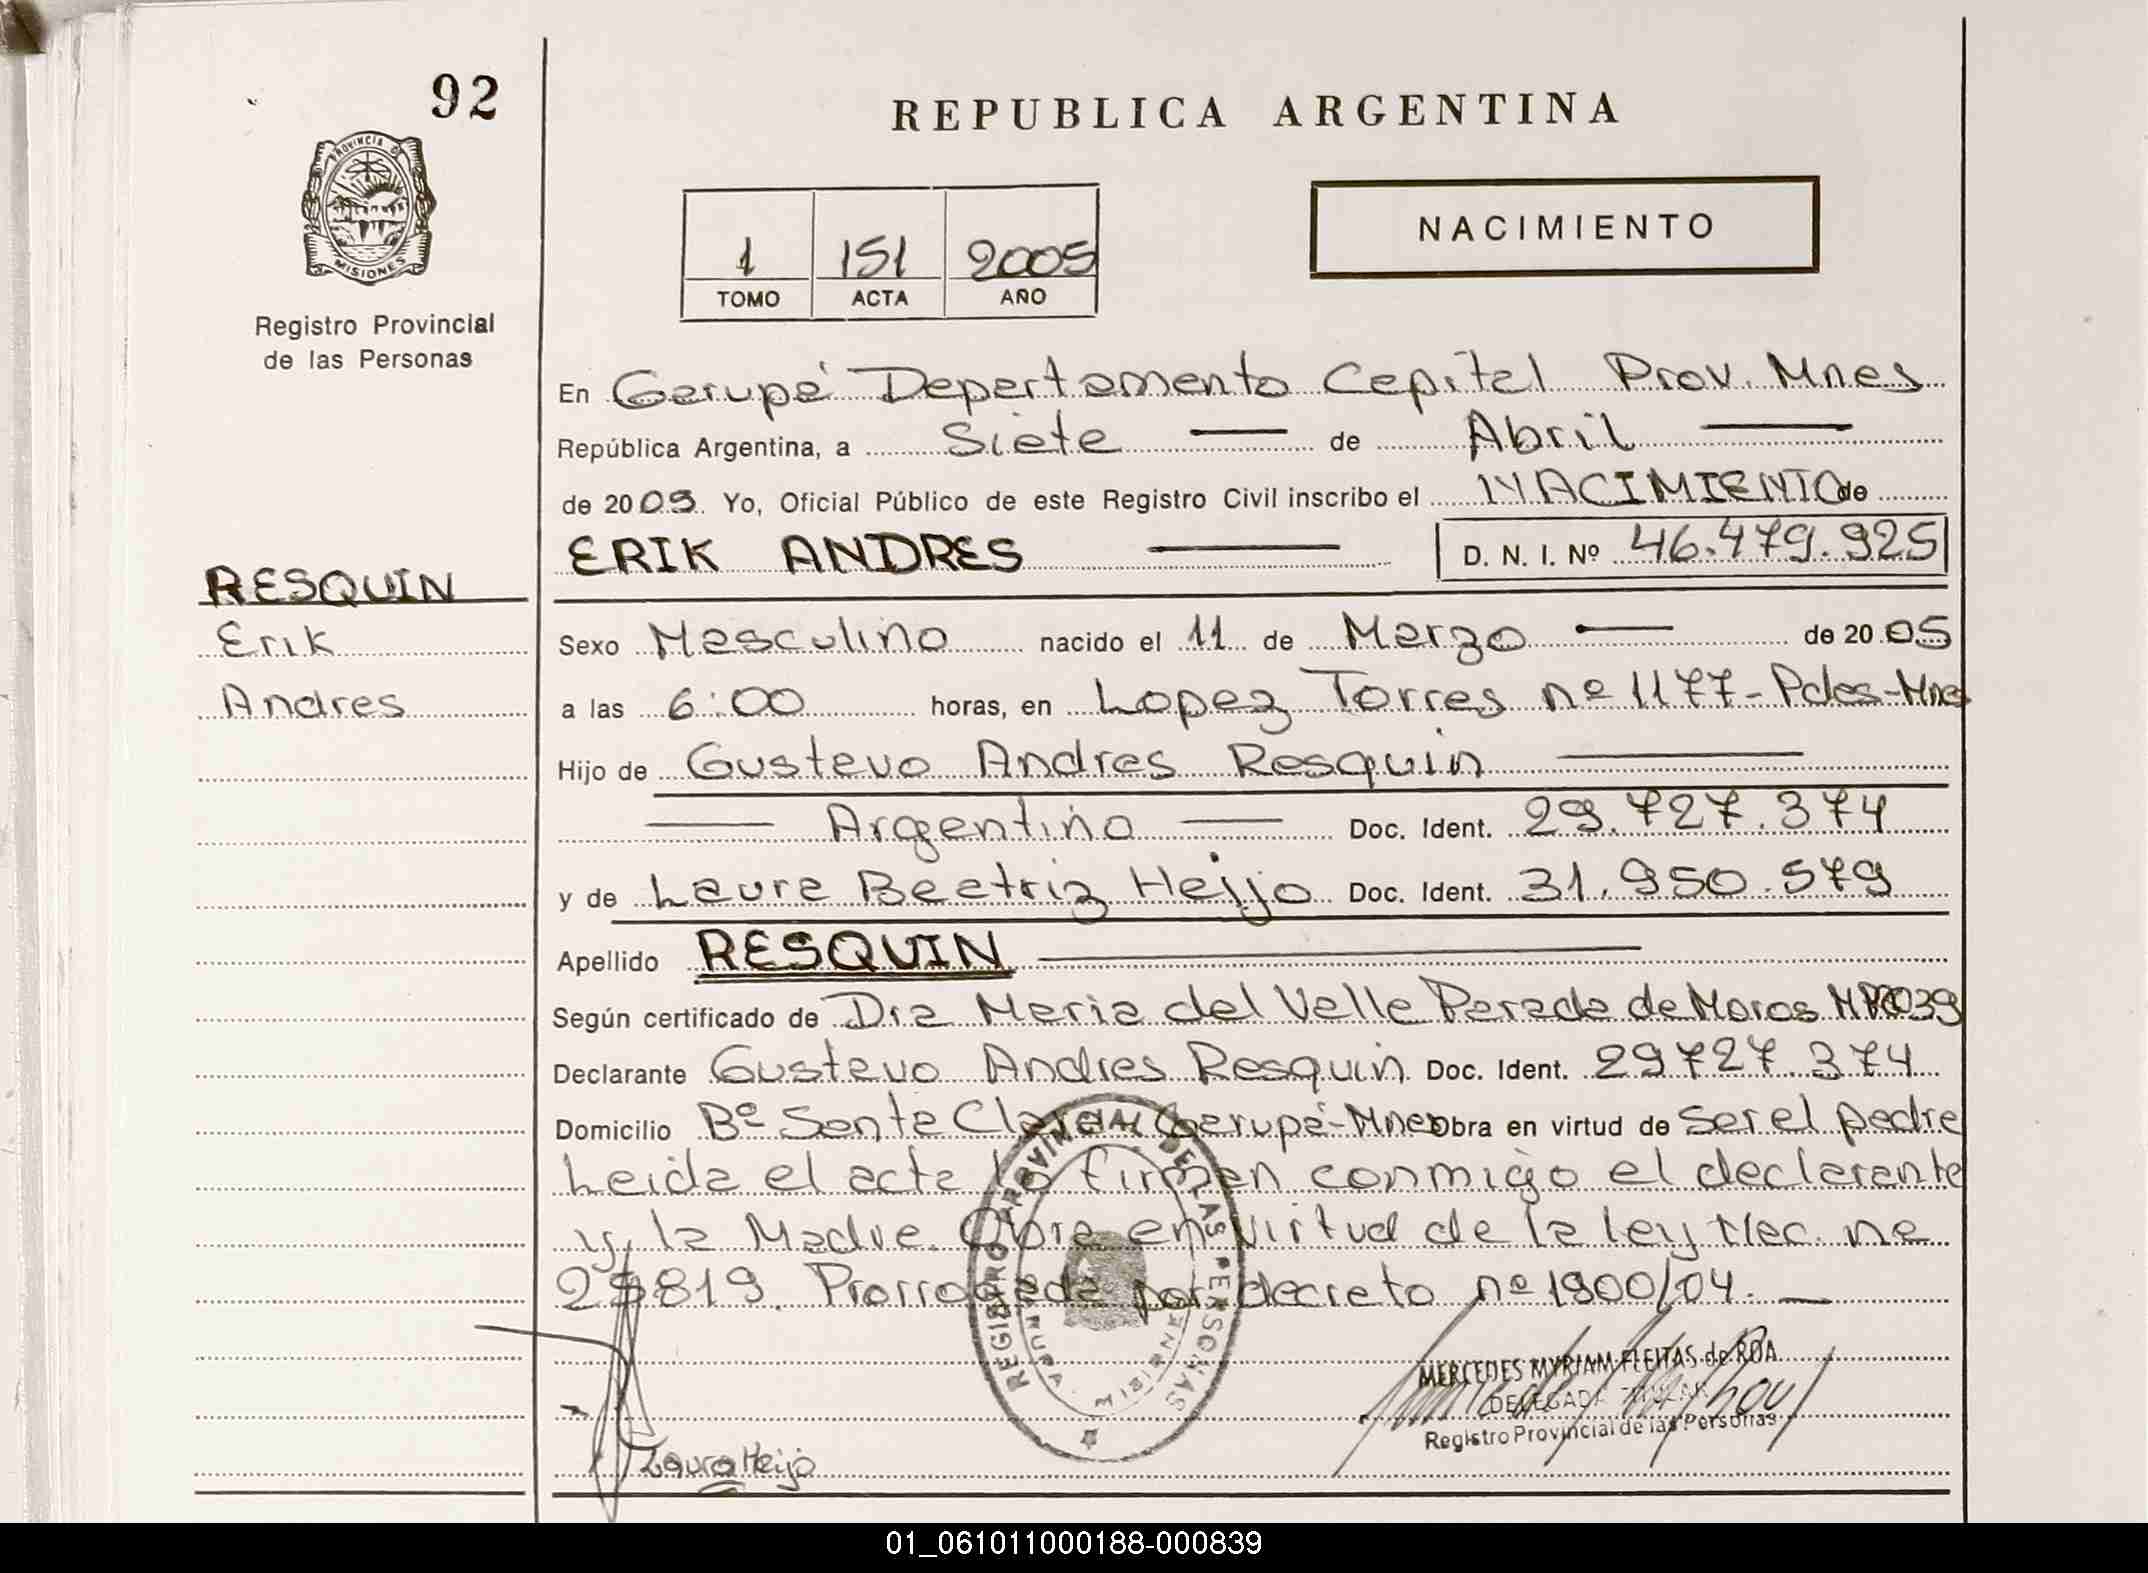 92
REPUBLICA ARGENTINA
PROVINCIA D
MISIONES
Registro Provincial
de las Personas
NACIMIENTO
1 151 2005
TOMO ACTA AÑO
En Garupá Departamento Capital Prov. Mnes
República Argentina, a Siete — de Abril —
de 2005. Yo, Oficial Público de este Registro Civil inscribo el NACIMIENTO de
ERIK ANDRES — D. N. I. Nº 46.479.925
RESQUIN
Erik
Andres
Sexo Masculino nacido el 11 de Marzo — de 2005
a las 6:00 horas, en Lopez Torres nº 1177-Pdas-Mnes
Hijo de Gustavo Andres Resquin —
— Argentino — Doc. Ident. 29.727.374
y de Laura Beatriz Heijo Doc. Ident. 31.950.579
Apellido RESQUIN —
Según certificado de Dra Maria del Valle Parada de Moros
Declarante Gustavo Andres Resquin Doc. Ident. 29727.374
Domicilio Bº Santa Clara Garupá-Mnes Obra en virtud de Ser el padre
Leida el acta la firman conmigo el declarante
y la Madre. Obra en virtud de la ley Nac. nº
25819. Prorrogada por decreto nº 1900/04. —
REGISTRO PROVINCIAL DE LAS PERSONAS
MERCEDES MYRIAM FLEITAS de ROA
DELEGADA TITULAR
Registro Provincial de las Personas
Laura Heijo
01_061011000188-000839